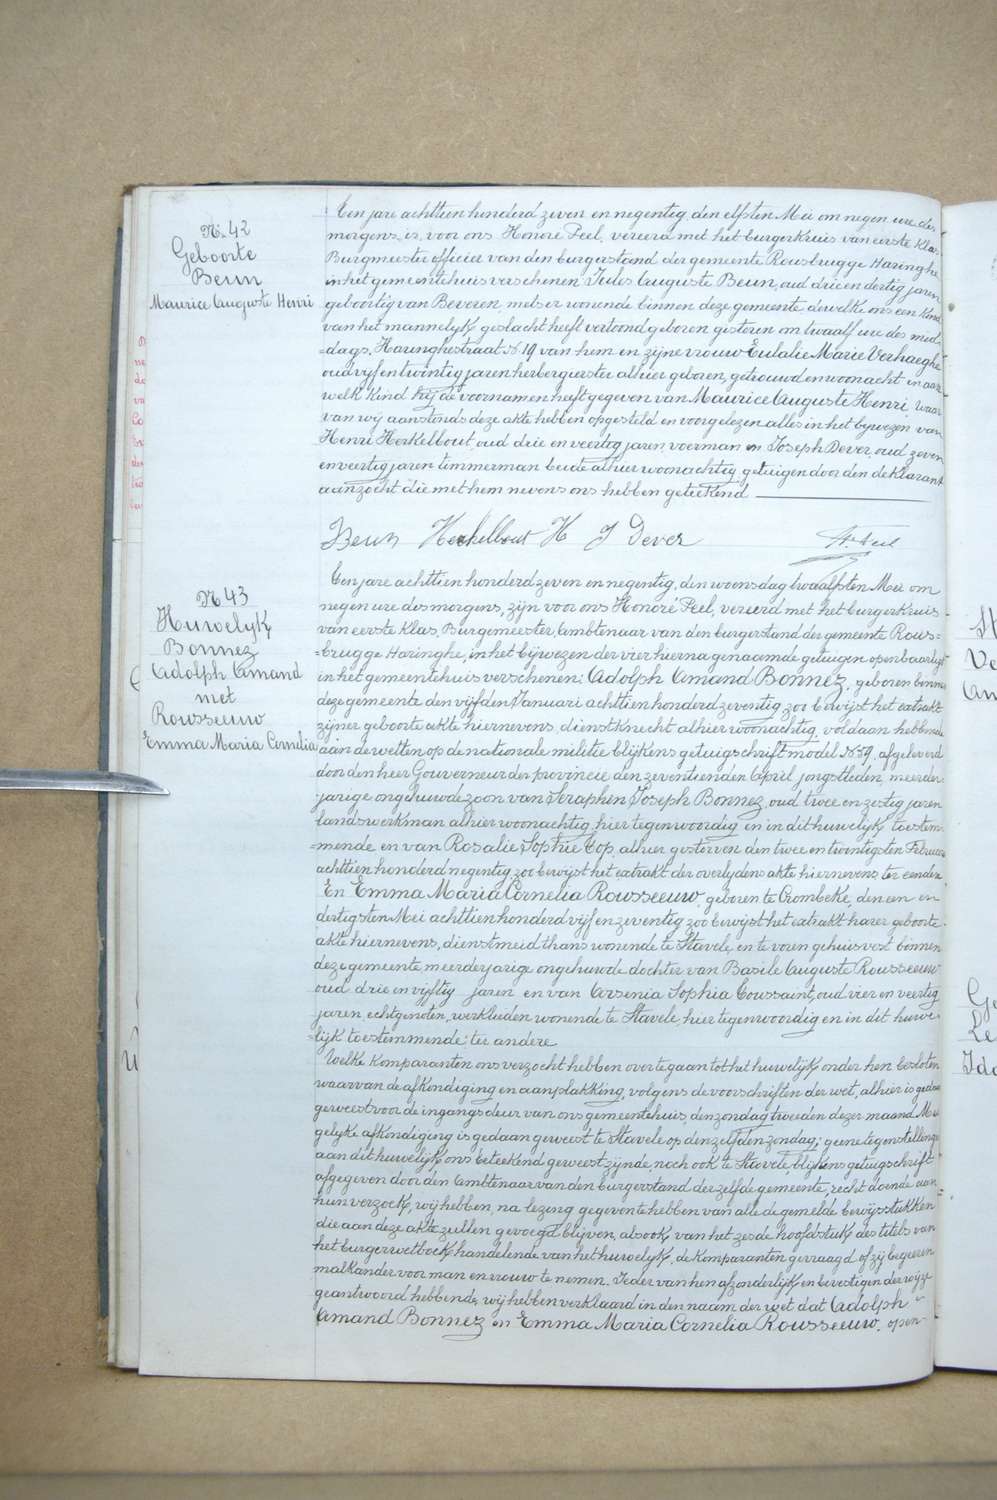 N. 42
Geboorte
Beun
Maurice Auguste Henri
Een jare achttien honderd zeven en negentig den elfsten Mei om negen ure des
morgens is voor ons Honoré Peel, vereerd met het burgerkruis van eerste klas,
Burgmeester officier van den burgerstand der gemeente Rousbrugge Haringhe
in het gemeentehuis verschenen: Jules Auguste Beun, oud drie en dertig jaren
geboortig van Beveren, metser wonende binnen deze gemeente, dewelke ons een kind
van het mannelijk geslacht heeft vertoond geboren gisteren om twaalf ure des mid-
=dags, Haringhestraat N 19 van hem en zijne vrouw Eulalie Marie Verhaeghe
oud vijf en twintig jaren herbergierster alhier geboren, getrouwd en woonacht en aan
welk kind hij de voornamen heeft gegeven van Maurice Auguste Henri, waar
van wij aanstonds deze akte hebben opgesteld en voorgelezen alles in het bijwezen van
Henri Herkelbout, oud drie en veertig jaren, voerman en Joseph Dever, oud zeven
en veertig jaren timmerman beide alhier woonachtig, getuigen door den deklarant
aanzocht die met hem nevens ons hebben geteekend
Beun Herkelbout H J Dever H. Peel
N 43
Huwelijk
Bonnez
Adolph Amand
met
Rousseeuw
Emma Maria Cornelia
Een jare achttien honderd zeven en negentig, den woensdag twaalfsten Mei om
negen ure des morgens, zijn voor ons Honoré Peel, vereerd met het burgerkruis
van eerste klas, Burgemeester, Ambtenaar van den burgerstand der gemeente Rous=
=brugge Haringhe, in het bijwezen der vier hierna genaamde getuigen openbaarlijk
in het gemeentehuis verschenen: Adolph Amand Bonnez, geboren binnen
deze gemeente den vijfden Januari achttien honderd zeventig zoo bewijst het extrakt
zijner geboorte akte hiernevens, dienstknecht alhier woonachtig, voldaan hebbende
aan de wetten op de nationale militie blijkens getuigschrift model N 59, afgeleverd
door den heer Gouverneur der provincie den zeventienden April jongstleden, meerder-
jarige ongehuwde zoon van Seraphin Joseph Bonnez, oud twee en zestig jaren
landswerkman alhier woonachtig, hier tegenwoordig en in dit huwelijk toestem-
=mende en van Rosalie Sophie Top, alhier gestorven den twee en twintigsten Februari
achttien honderd negentig zoo bewijst het extrakt der overlydens akte hiernevens, ter eender
En Emma Maria Cornelia Rousseeuw, geboren te Crombeke, den een en
dertigsten Mei achttien honderd vijf en zeventig zoo bewijst het extrakt harer geboorte-
akte hiernevens, dienstmeid thans wonende te Stavele, en te voren gehuisvest binnen
deze gemeente, meerderjarige ongehuwde dochter van Basile Auguste Rousseeuw
oud drie en vijftig jaren en van Arsenia Sophia Coussaint, oud vier en veertig
jaren echtgenoten, werklieden wonende te Stavele, hier tegenwoordig en in dit huwe-
=lijk toestemmende ter andere
Welke komparanten ons verzocht hebben over te gaan tot het huwelijk onder hen besloten
waarvan de afkondiging en aanplakking, volgens de voorschriften der wet, alhier is gedaan
geweest voor de ingangsdeur van ons gemeentehuis, den zondag tweeden dezer maand Mei
gelyke afkondiging is gedaan geweest te Stavele op denzelfden zondag; geene tegenstelling
aan dit huwelijk ons beteekend geweest zijnde, noch ook te Stavele, blijkens getuigschrift
afgegeven door den Ambtenaar van den burgerstand derzelfde gemeente; recht doende aan
hun verzoek, wij hebben, na lezing gegeven te hebben van alle de gemelde bewijsstukken
die aan deze akte zullen gevoegd blijven, alsook van het zesde hoofdstuk des titels van
het burgerwetboek, handelende van het huwelijk, de komparanten gevraagd of zij begeeren
malkander voor man en vrouw te nemen. Ieder van hen afzonderlijk en bevestigender wijze
geantwoord hebbende, wij hebben verklaard in den naam der wet dat Adolph
Amand Bonnez en Emma Maria Cornelia Rousseeuw, open-